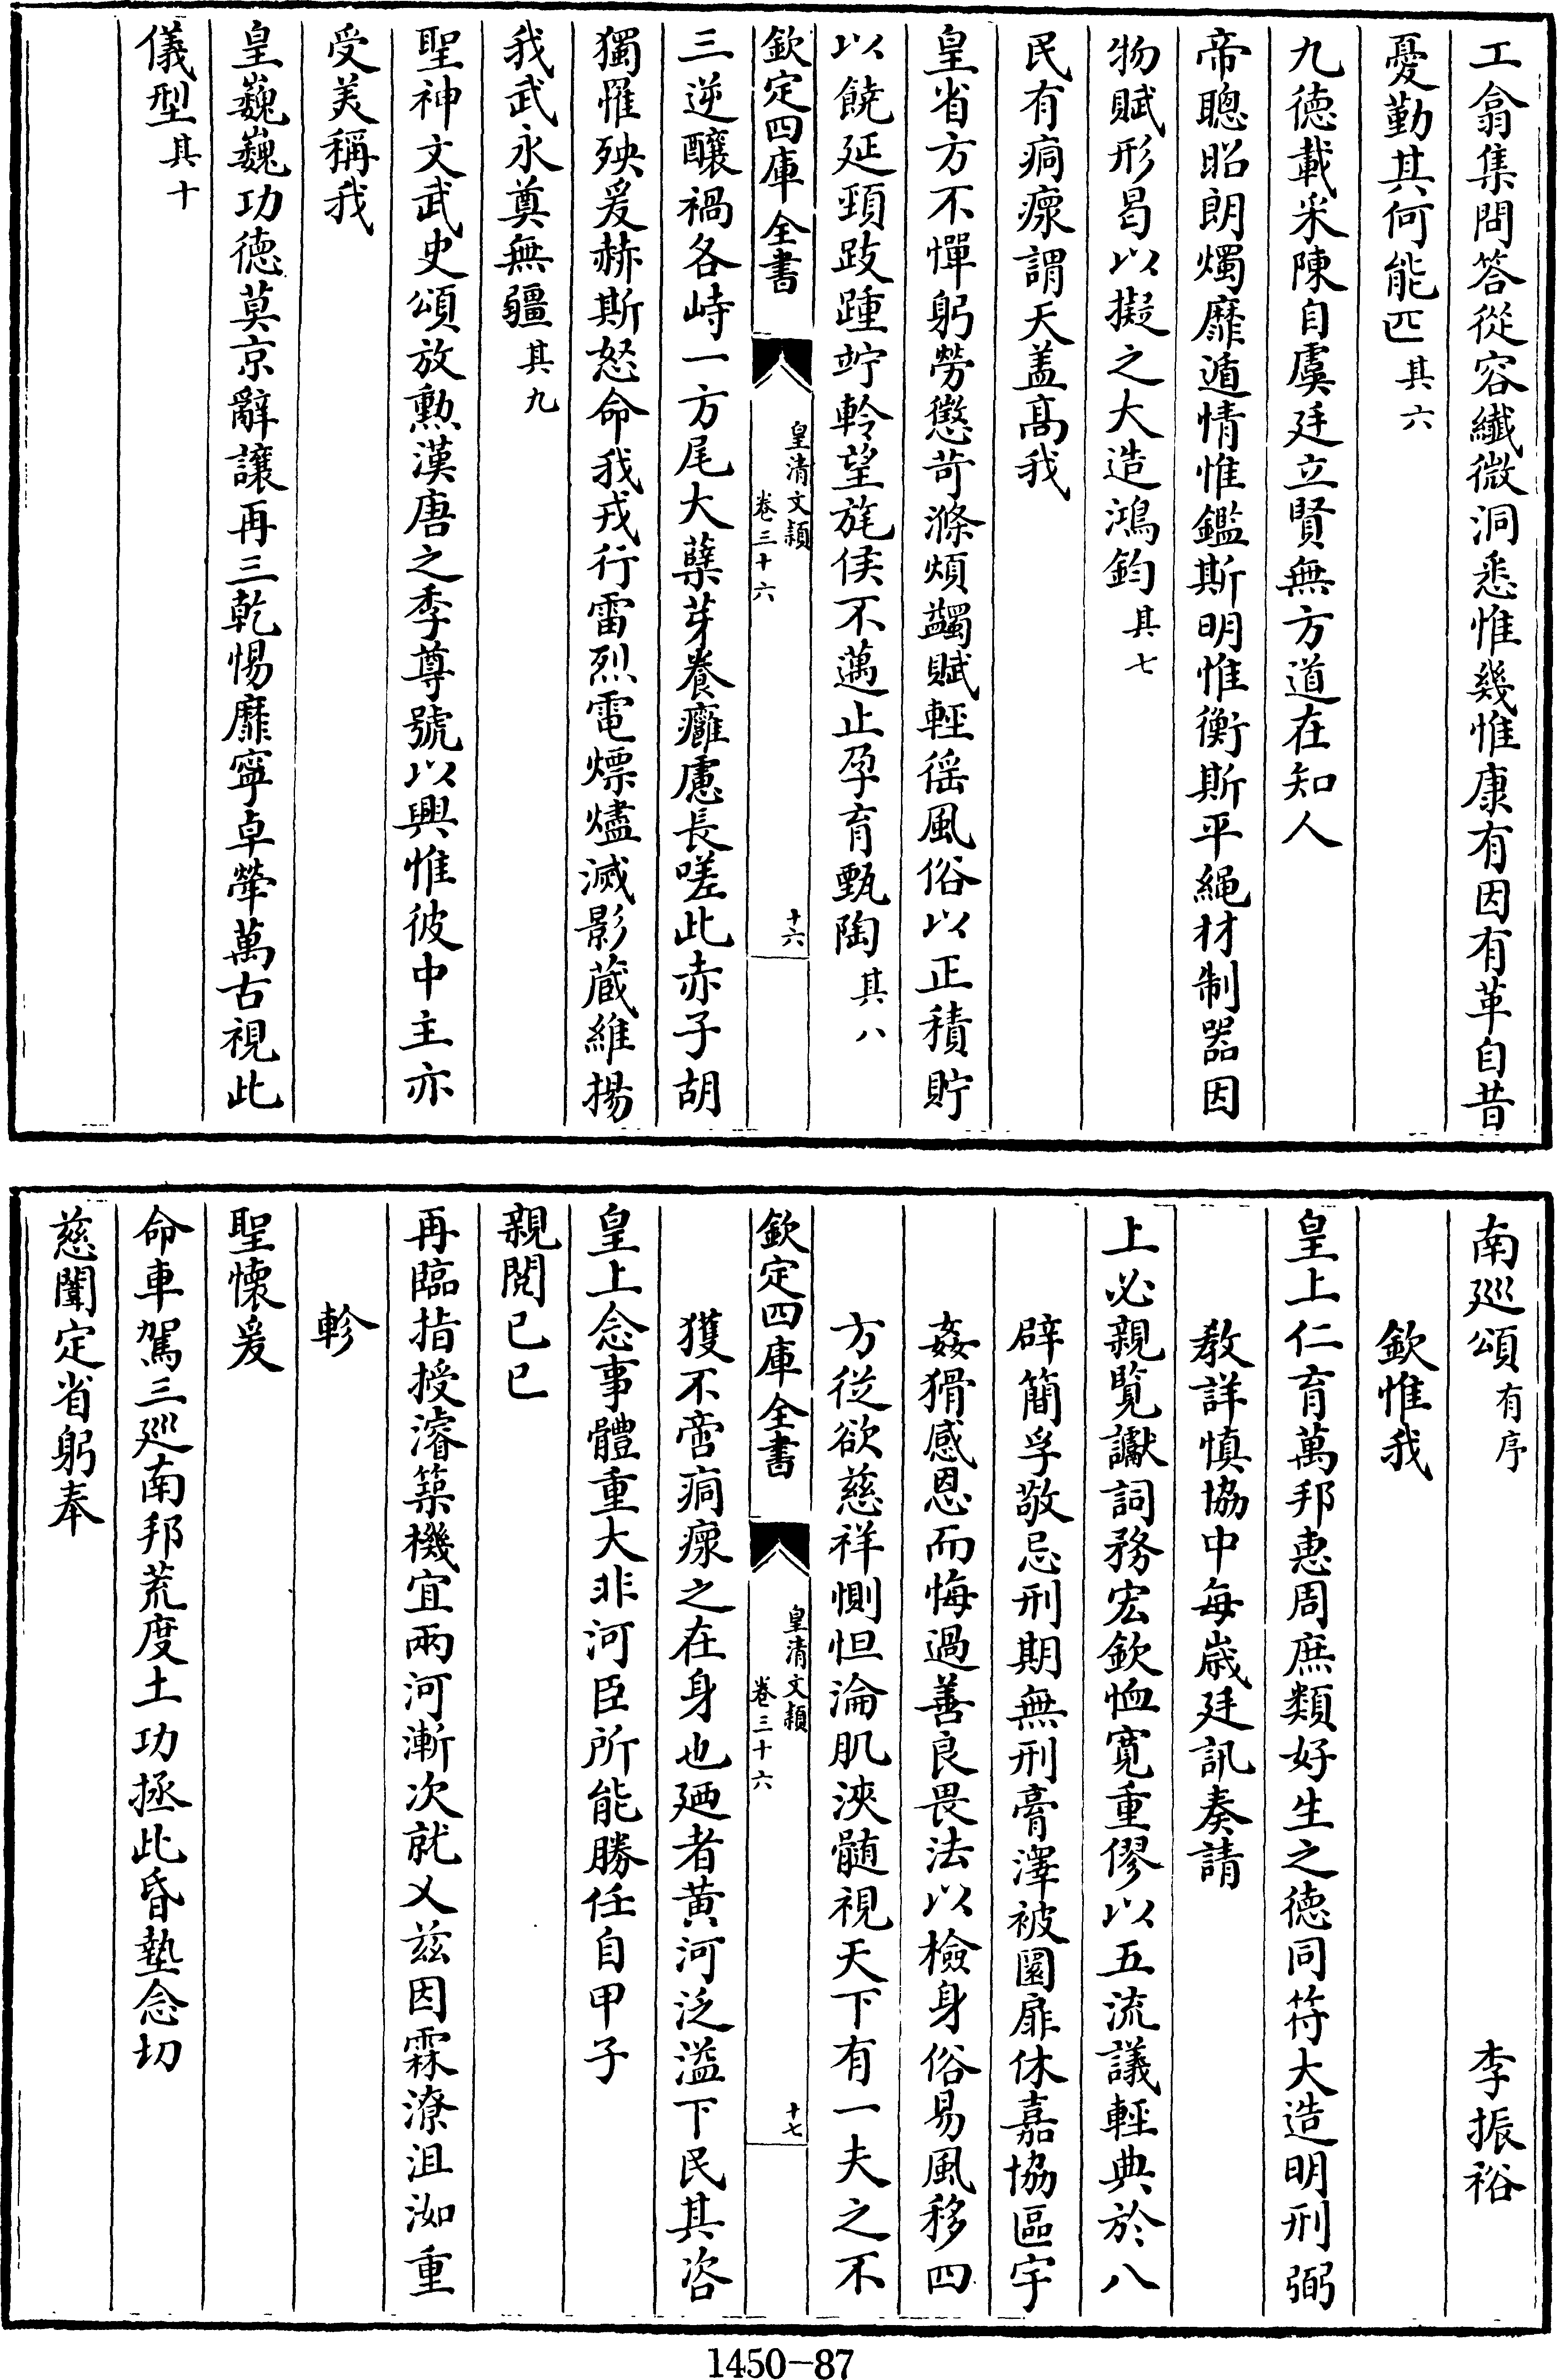 工翕集問答從容纖微洞悉惟幾惟康有因有革自昔
憂勤其何能匹其六
九德載采陳自虞廷立賢無方道在知人
帝聰昭朗燭靡遁情惟鑑斯明惟衡斯平繩材制器因
物賦形曷以擬之大造鴻鈞其七
民有痌瘝謂天盖髙我
皇省方不憚躬勞懲苛滌煩蠲賦輕徭風俗以正積貯
以饒延頸跂踵竚軨望旄俟不邁止孕育甄陶其八
欽定四庫全書
皇清文穎
卷三十六
十六
三逆釀禍各峙一方尾大蘖芽養癰慮長嗟此赤子胡
獨罹殃爰赫斯怒命我戎行雷烈電熛燼滅影蔵維揚
我武永奠無疆其九
聖神文武史頌放勲漢唐之季尊號以興惟彼中主亦
受美稱我
皇巍巍功德莫京辭讓再三乾惕靡寧卓犖萬古視此
儀型其十
南廵頌有序
李振裕
欽惟我
皇上仁育萬邦惠周庶類好生之德同符大造明刑弼
教詳慎協中每嵗廷訊奏請
上必親覽讞詞務宏欽恤寛重僇以五流議輕典於八
辟簡孚敬忌刑期無刑膏澤被圜扉休嘉協區宇
姦猾感恩而悔過善良畏法以檢身俗易風移四
方從欲慈祥惻怛淪肌浹髄視天下有一夫之不
欽定四庫全書
皇清文穎
卷三十六
十七
獲不啻痌瘝之在身也廼者黄河泛溢下民其咨
皇上念事體重大非河臣所能勝任自甲子
親閲己巳
再臨指授濬築機宜兩河漸次就乂兹因霖潦沮洳重
軫
聖懐爰
命車駕三廵南邦荒度土功拯此昏墊念切
慈闈定省躬奉
1450-87